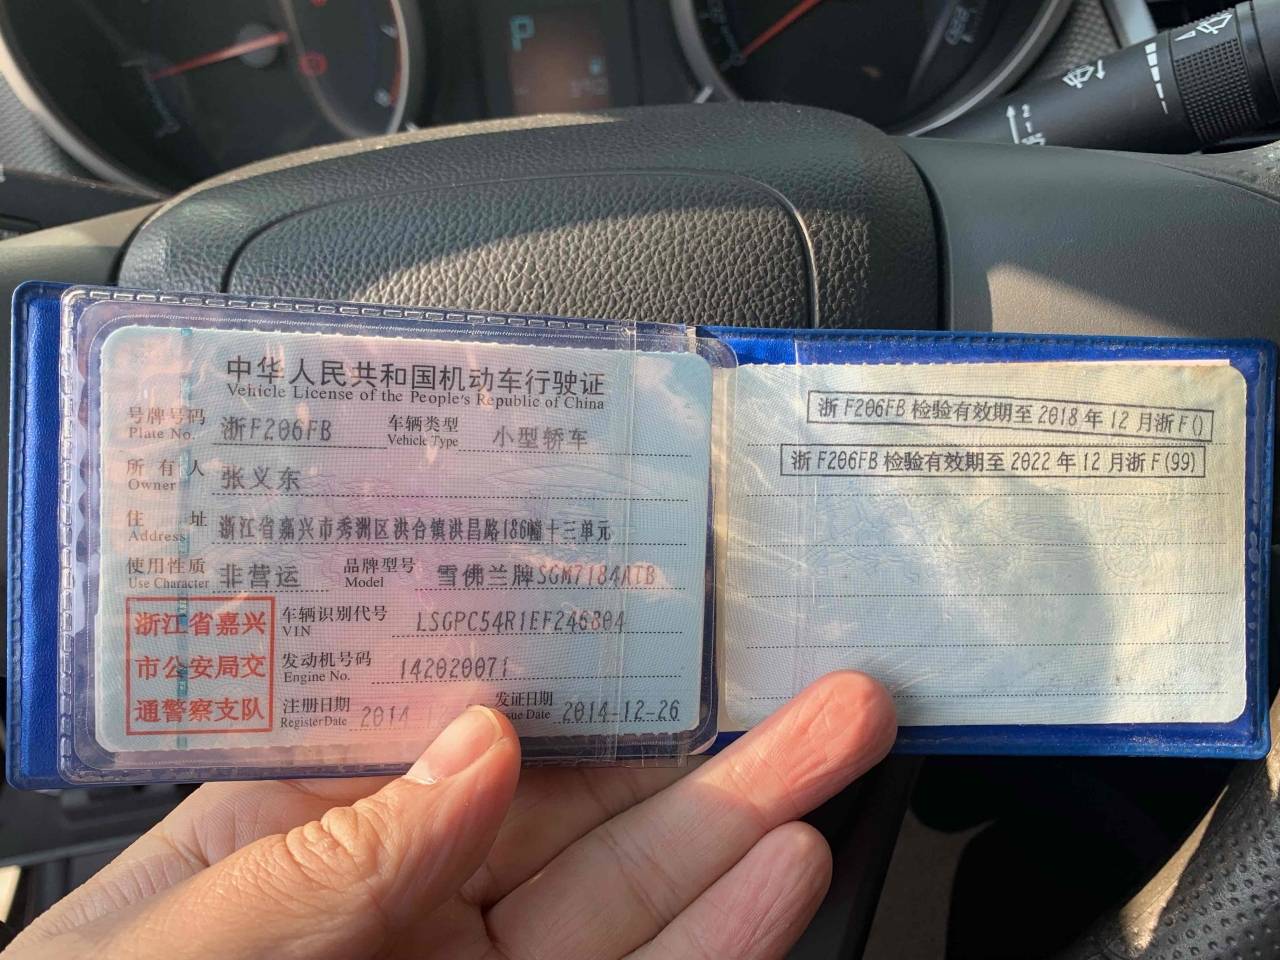 P
中华人民共和国机动车行驶证
Vehicle License of the People's Republic of China
号牌号码 浙F206FB 车辆类型 小型轿车
Plate No. Vehicle Type
所有人 张义东
Owner
住址 浙江省嘉兴市秀洲区洪合镇洪昌路186幢十三单元
Address
使用性质 非营运 品牌型号 雪佛兰牌SGM7184ATB
Use Character Model
浙江省嘉兴
市公安局交
通警察支队
车辆识别代号 LSGPC54R1EF246804
VIN
发动机号码 142020071
Engine No.
注册日期 2014 发证日期 2014-12-26
Register Date Date
浙F206FB检验有效期至2018年12月浙F()
浙F206FB检验有效期至2022年12月浙F(99)